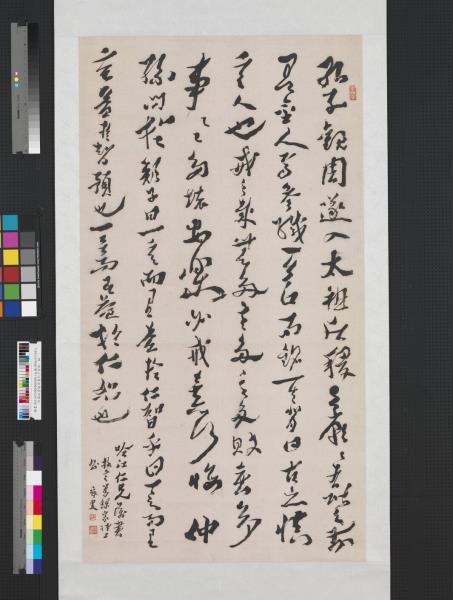 孔子觀周遂入太祖后稷之廟廟右階之前
有金人焉參緘其口而銘其背曰古之慎
言人也戒之哉無多言多言多敗無多
事安樂必戒無所行悔仲
孫問於顏子曰一言而有益於仁智乎曰一言而有
益智預也一言而有益於仁恕也
吟江仁兄屬書